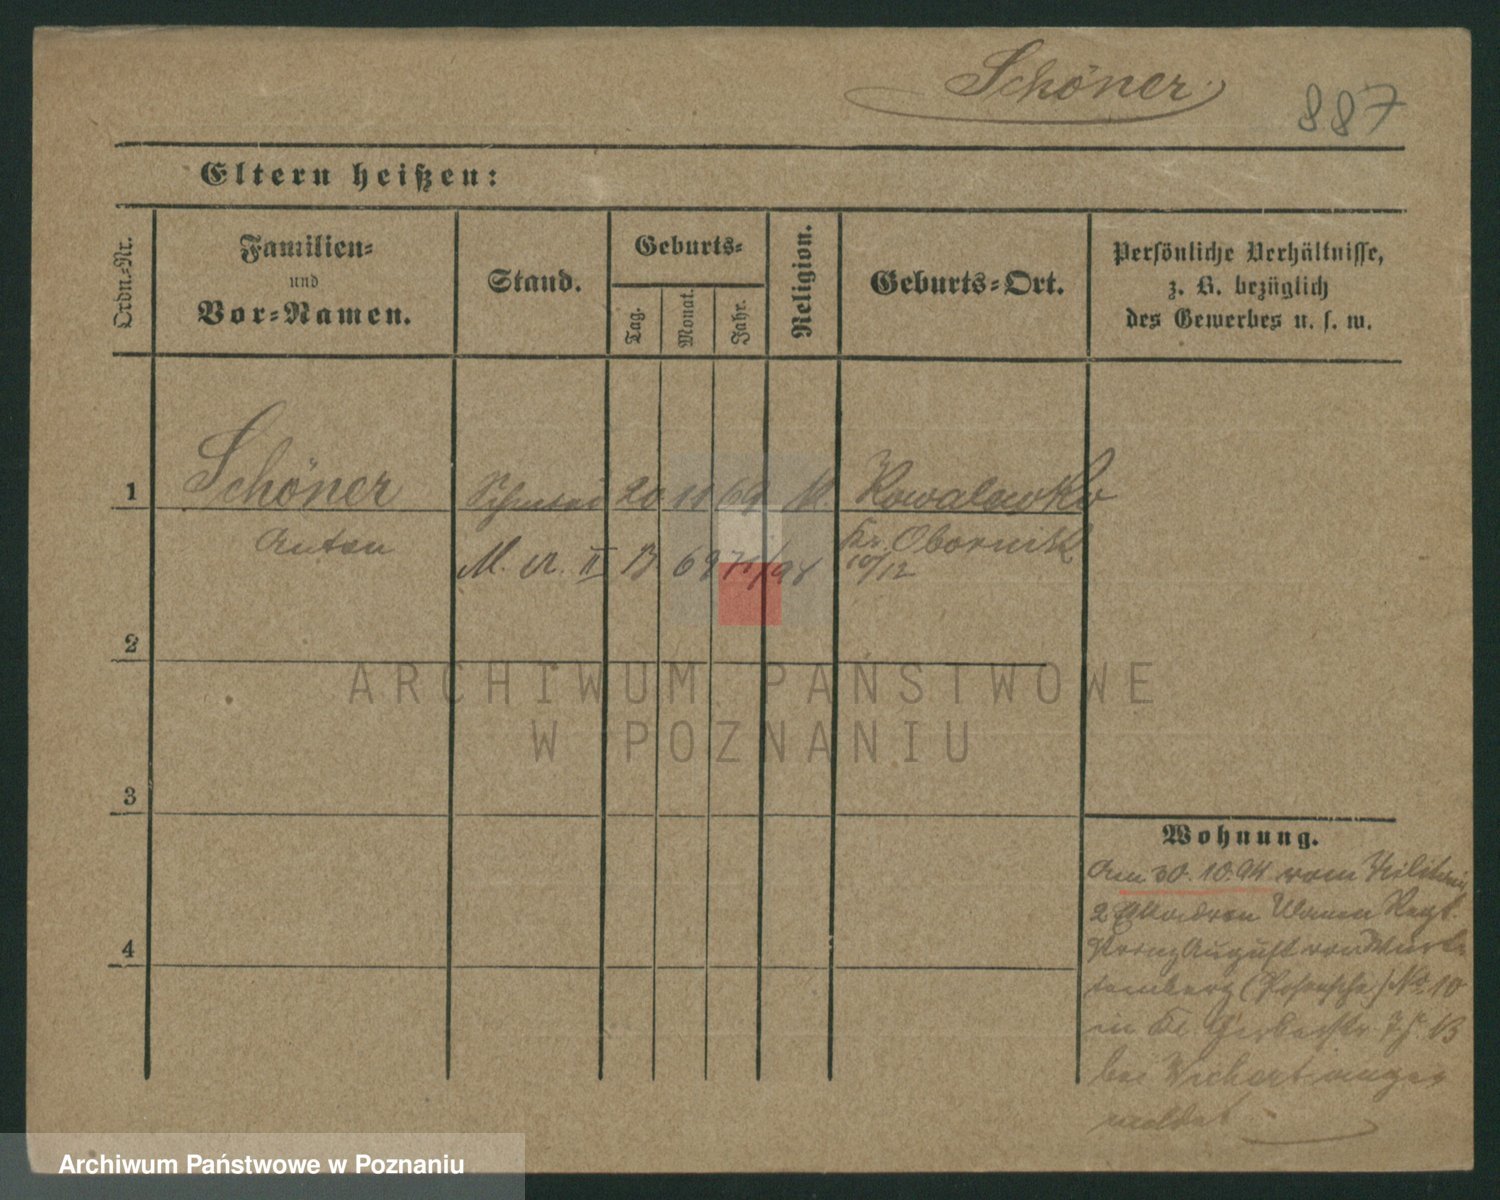 Schöner
887
Eltern heißen:
Ordn.-Nr.
Familien-
und
Vor-Namen.
Stand.
Geburts-
Tag.
Monat.
Jahr.
Religion.
Geburts-Ort.
Persönliche Verhältnisse,
z. B. bezüglich
des Gewerbes u. s. w.
1 Schöner 20 10 69 K. Kowalewko
Anton Kr. Obornik
M. A. II 10/12
2
ARCHIWUM PAŃSTWOWE
W POZNANIU
3
Wohnung.
Am 30.10.94 vom Militair,
2 Eskadron Ulanen Regt.
Prinz August von Würt-
temberg (Posensche) No. 10
in Kl. Gerberstr. 7
bei Wichert ange-
meldet
4
Archiwum Państwowe w Poznaniu